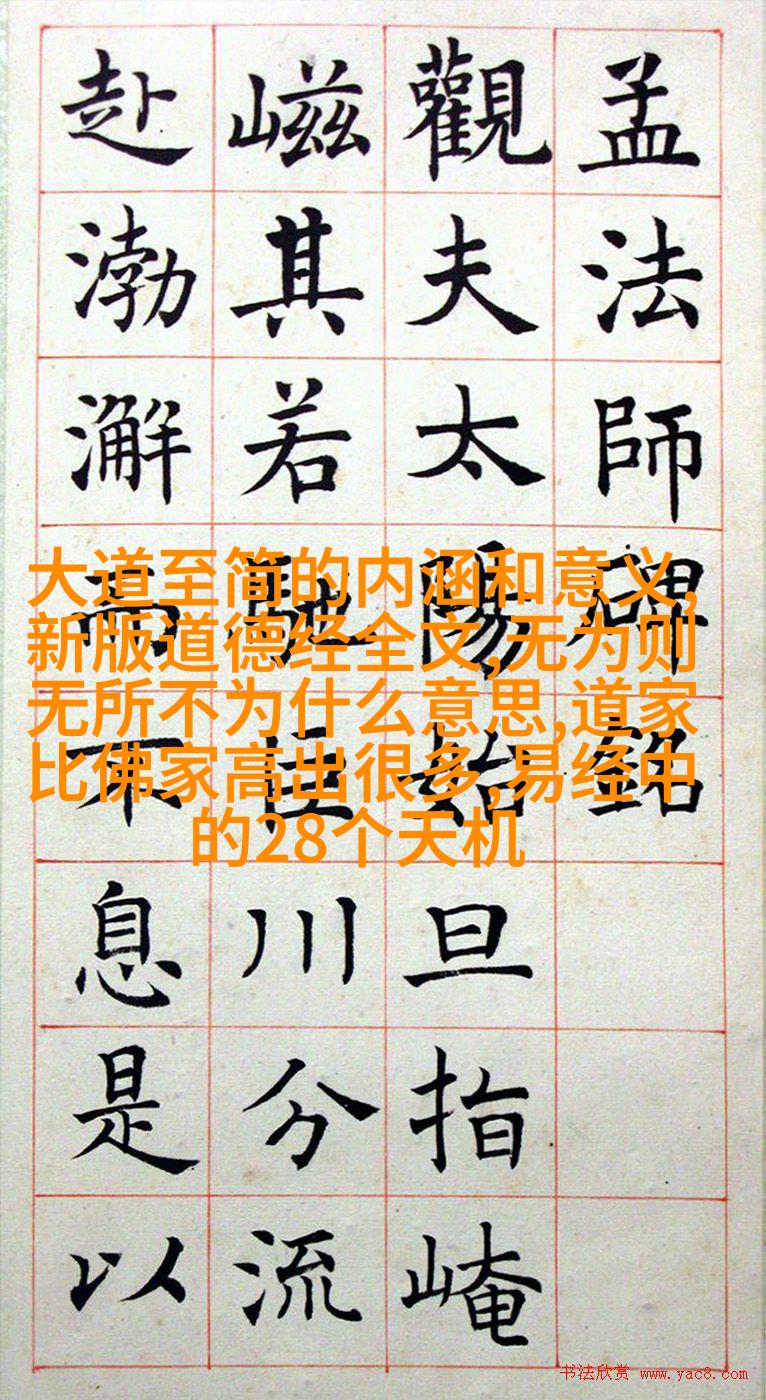 孟法師碑銘
觀夫太陽始旦指崦
嵫其若馳巨川分流
赴渤澥而不息是以
大道至简的内涵和意义,
新版道德经全文,无为则
无所不为什么意思,道家
比佛家高出很多,易经中
的28个天机
书法欣赏 www.yac8.com